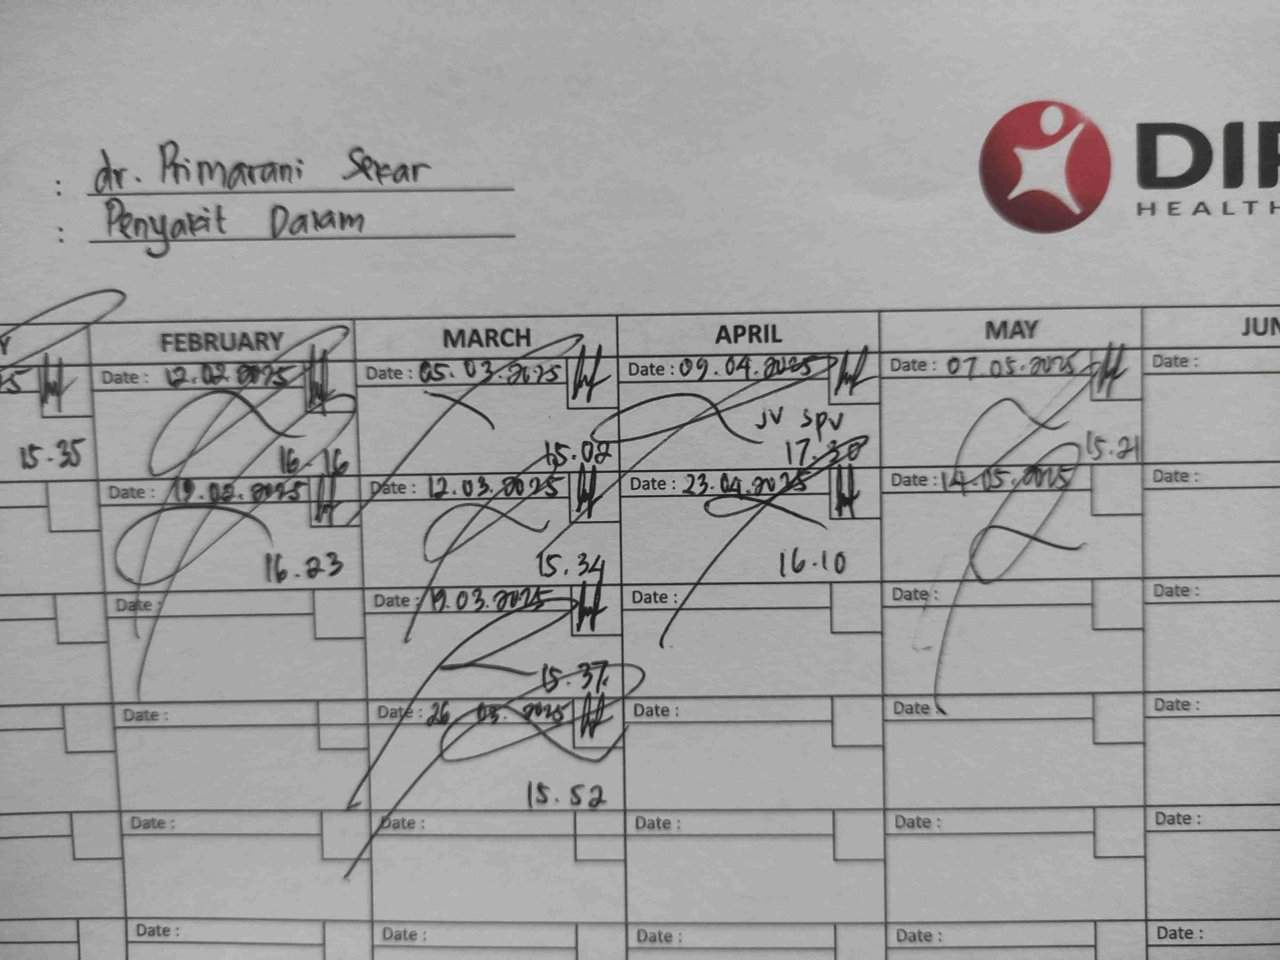 : dr. Primarani Sekar
: Penyakit Dalam
DI
HEALTH
FEBRUARY MARCH APRIL MAY JUN
Date : 12.02.2025 Date : 05.03.2025 Date : 09.04.2025 Date : 07.05.2025 Date :
JV SPV
15.35 16.16 15.02 17.30 15.21
Date : 19.02.2025 Date : 12.03.2025 Date : 23.04.2025 Date : 14.05.2025 Date :
16.23 15.34 16.10
Date : Date : 19.03.2025 Date : Date : Date :
15.37
Date : Date : 26 03. 2025 Date : Date : Date :
15.52
Date : Date : Date : Date : Date :
Date : Date : Date : Date : Date :